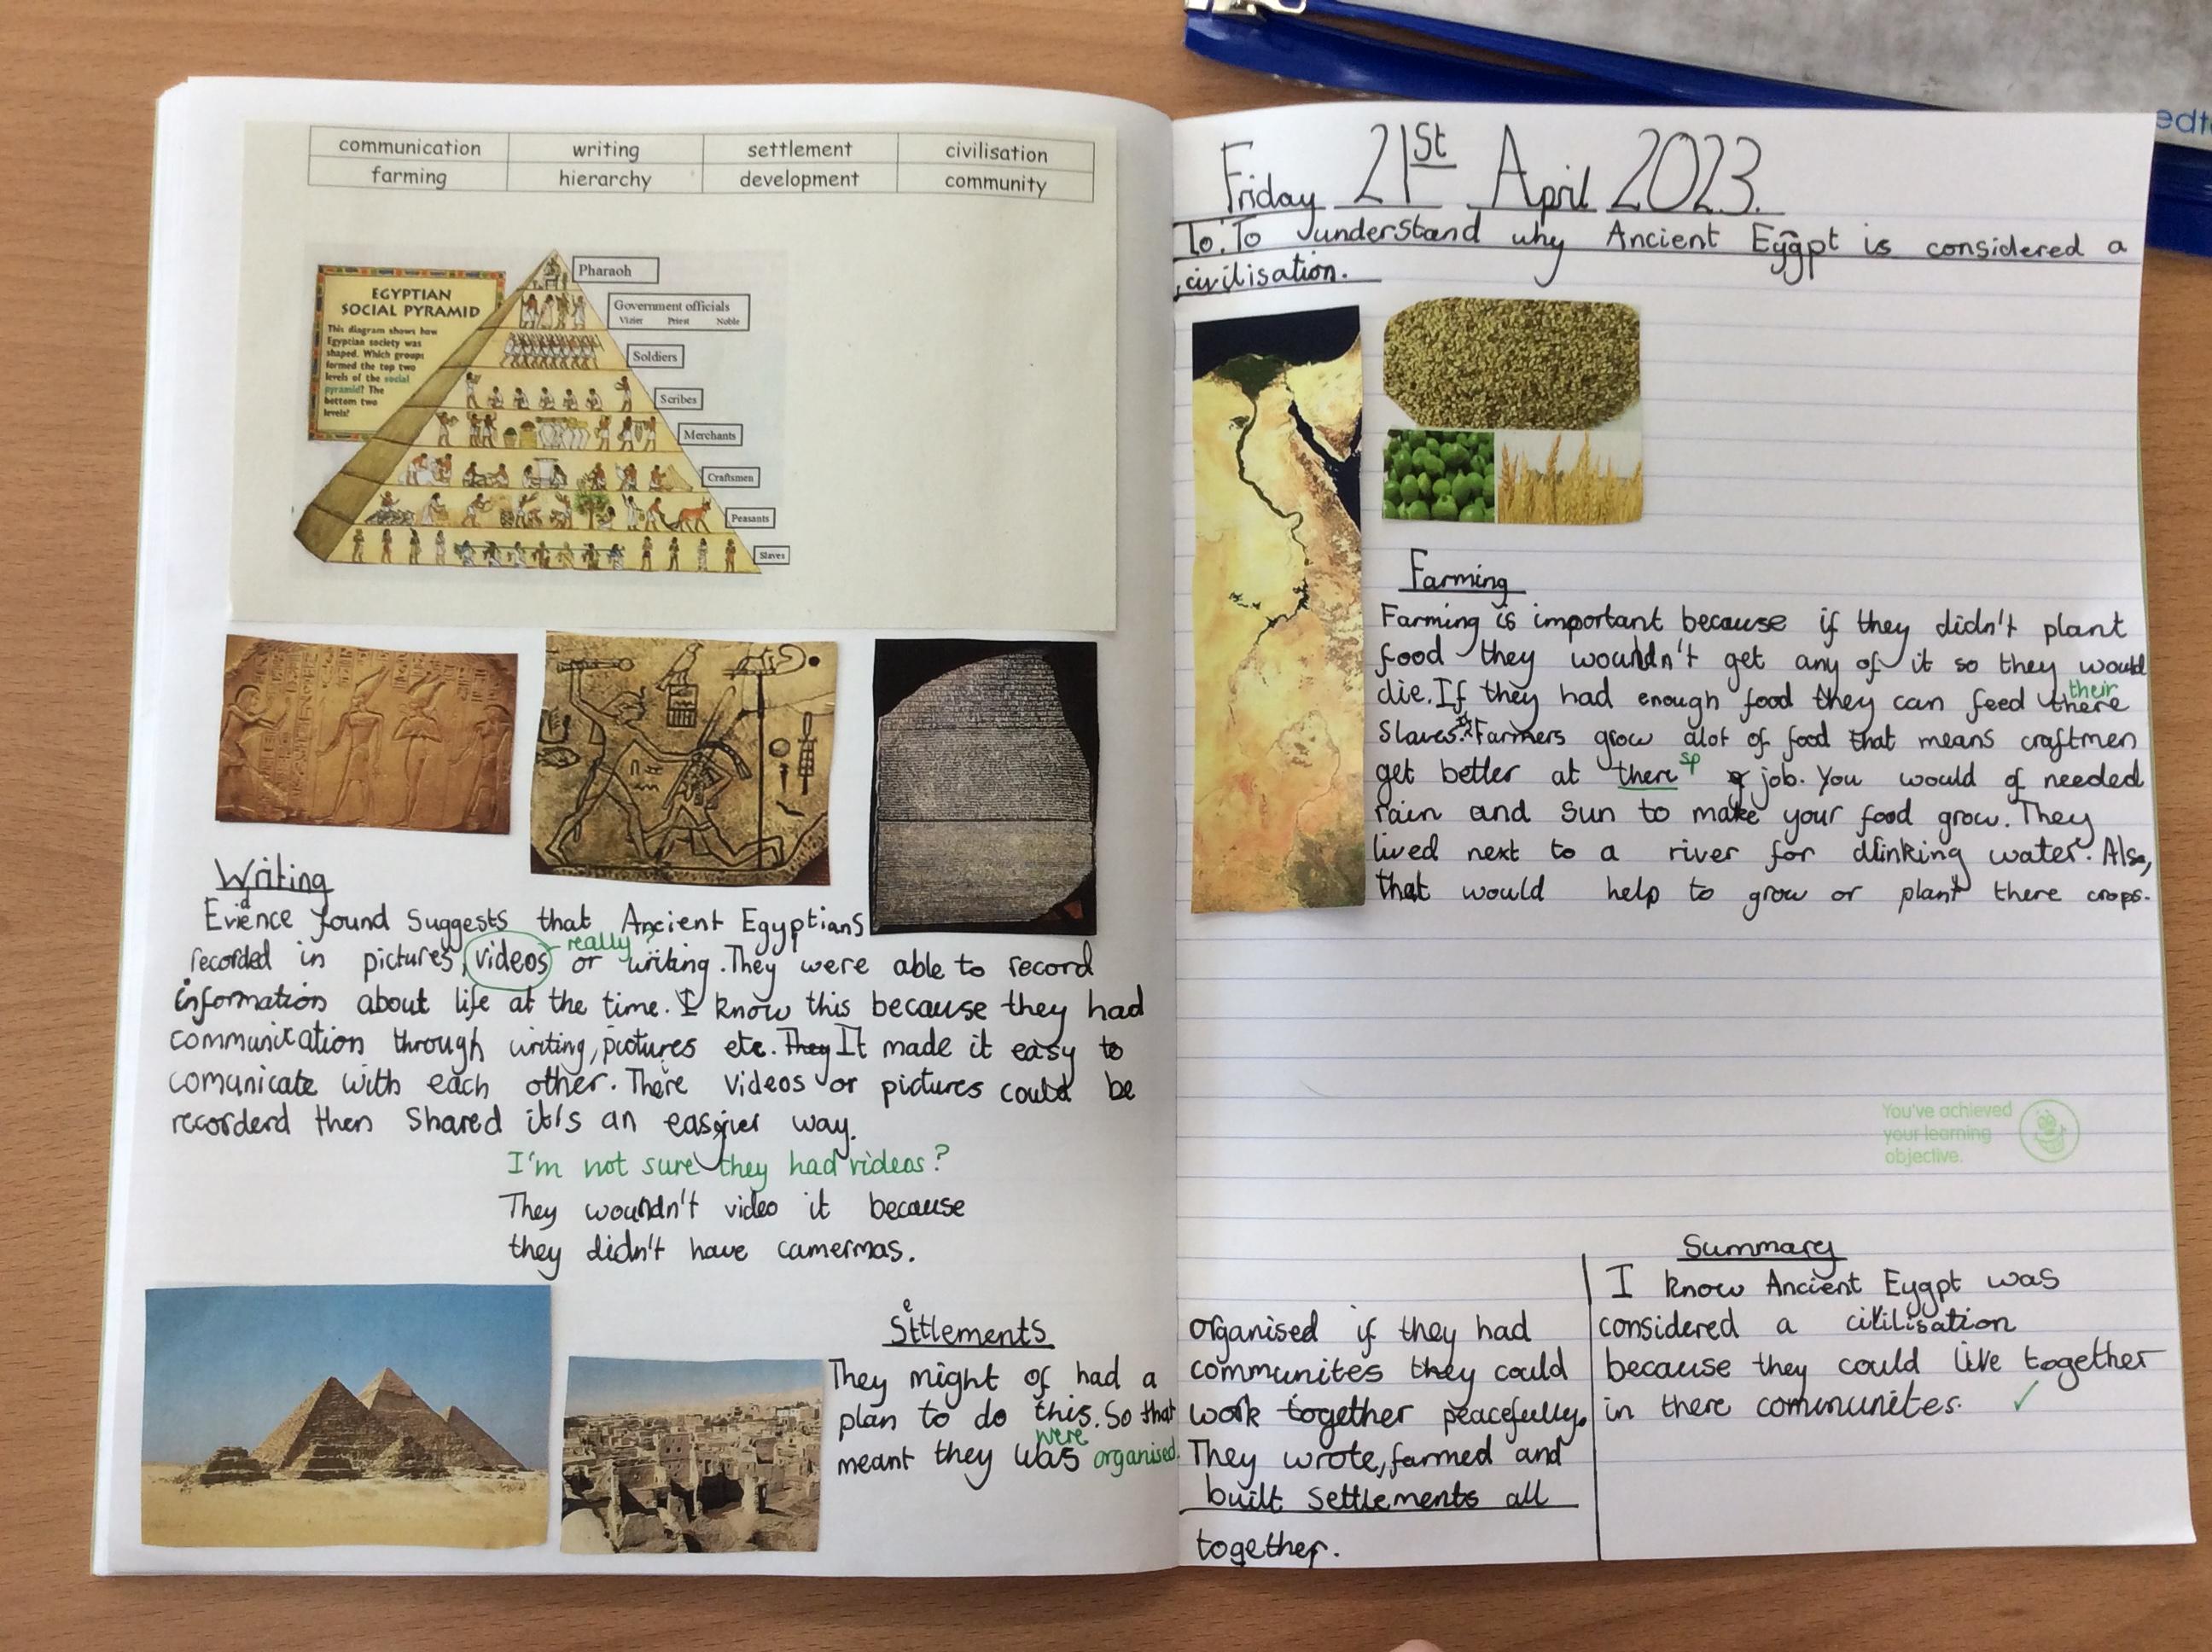 communication writing settlement civilisation
farming hierarchy development community
EGYPTIAN
SOCIAL PYRAMID
This diagram shows how
Egyptian society was
shaped. Which groups
formed the top two
levels of the social
pyramid? The
bottom two
levels?
Pharaoh
Government officials
Vizier Priest Noble
Soldiers
Scribes
Merchants
Craftsmen
Peasants
Slaves
Writing
Evidence found suggests that Ancient Egyptians
recorded in pictures, videos or writing. They were able to record
really?
information about life at the time. I know this because they had
communication through writing, pictures etc. They It made it easy to
comunicate with each other. There videos or pictures could be
recorderd then shared it's an easyier way.
I'm not sure they had videos?
They wouldn't video it because
they didn't have camermas.
Settlements
They might of had a
plan to do this. So that
were
meant they was organised.
Friday 21st April 2023.
To: To understand why Ancient Eygpt is considered a
civilisation.
Farming
Farming is important because if they didn't plant
food they wouldn't get any of it so they would
their
die. If they had enough food they can feed there
Slaves. Farmers grow alot of food that means craftmen
get better at there sp job. You would of needed
rain and sun to make your food grow. They
lived next to a river for drinking water. Also,
that would help to grow or plant there crops.
You've achieved
your learning
objective.
organised if they had
communites they could
work together peacefully.
They wrote, farmed and
built settlements all
together.
Summary
I know Ancient Eygpt was
considered a civilisation
because they could live together
in there communites.